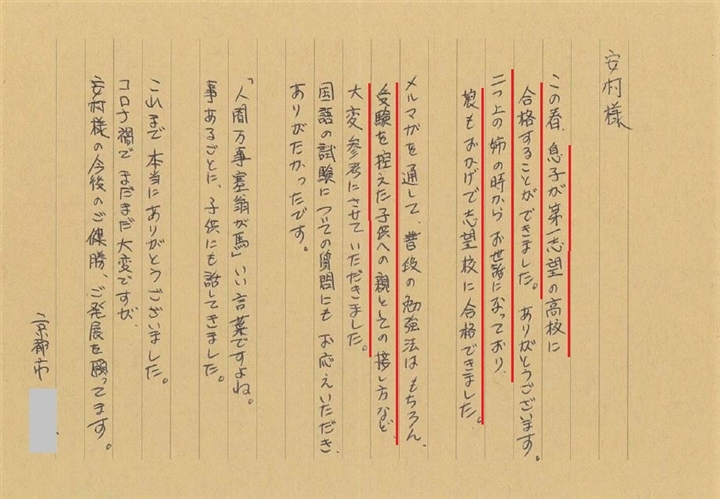 安村様
この春、息子が第一志望の高校に
合格することができました。ありがとうございます。
二つ上の姉の時からお世話になっており、
娘もおかげで志望校に合格できました。
メルマガを通して、普段の勉強法はもちろん、
受験を控えた子供への親としての接し方など
大変参考にさせていただきました。
国語の試験についての質問にもお応えいただき、
ありがたかったです。
「人間万事塞翁が馬」いい言葉ですよね。
事あるごとに、子供にも話してきました。
これまで本当にありがとうございました。
コロナ禍でまだまだ大変ですが、
安村様の今後のご健勝、ご発展を願ってます。
京都市